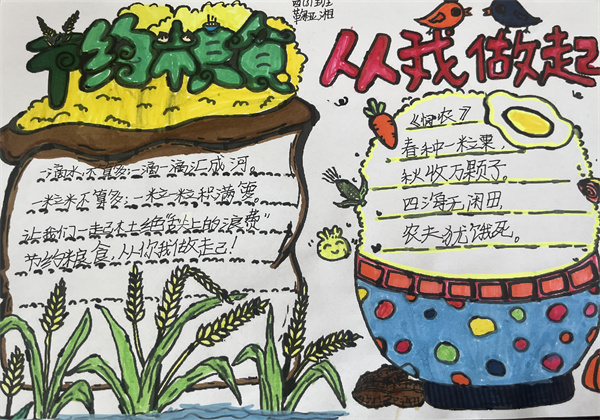 节约粮食 从我做起
四(3)班
《悯农》
春种一粒粟,
秋收万颗子。
四海无闲田,
农夫犹饿死。
一滴水,不算多,一滴一滴汇成河。
一粒米不算多,一粒一粒积满箩。
让我们一起杜绝“舌尖上的浪费”
节约粮食,从你我做起!